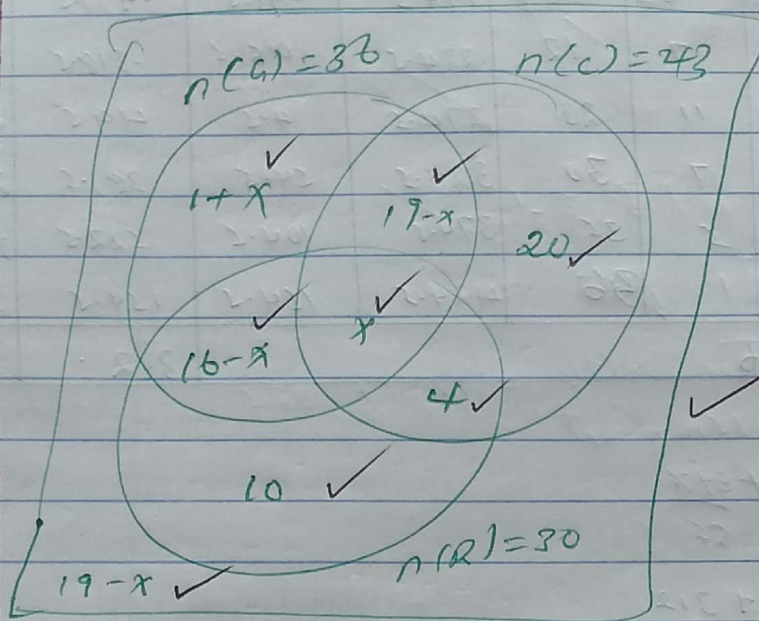 n(G)=36
n(C)=43
1+x
19-x
20
16-x
x
4
10
n(R)=30
19-x